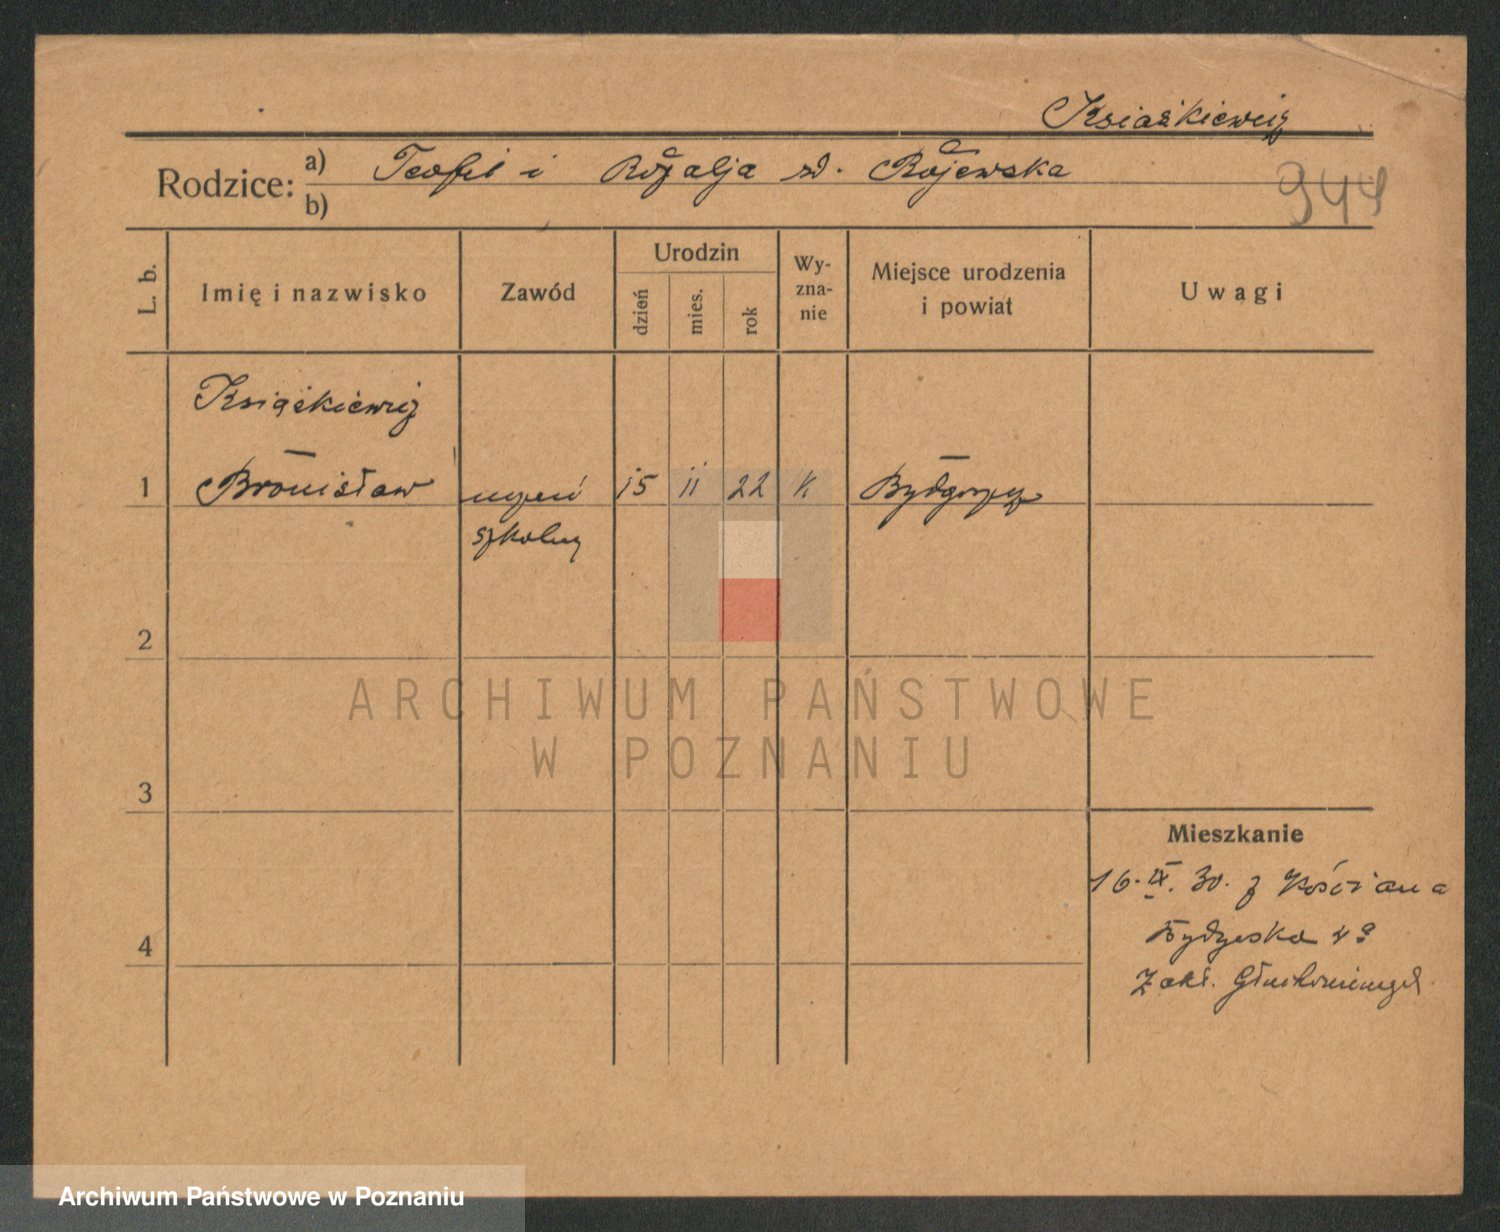 Książkiewicz
Rodzice: a) Teofil i Rozalja zd. Rojewska
b)
944
L. b.
Imię i nazwisko
Zawód
Urodzin
dzień
mies.
rok
Wy-
zna-
nie
Miejsce urodzenia
i powiat
Uwagi
Książkiewicz
1 Bronisław uczeń 15 11 22 k Bydgoszcz
szkolny
2
ARCHIWUM PAŃSTWOWE
W POZNANIU
3
Mieszkanie
16. IX. 30. z Kościana
4
Bydgoska
Zakł. Głuchoniemych
Archiwum Państwowe w Poznaniu